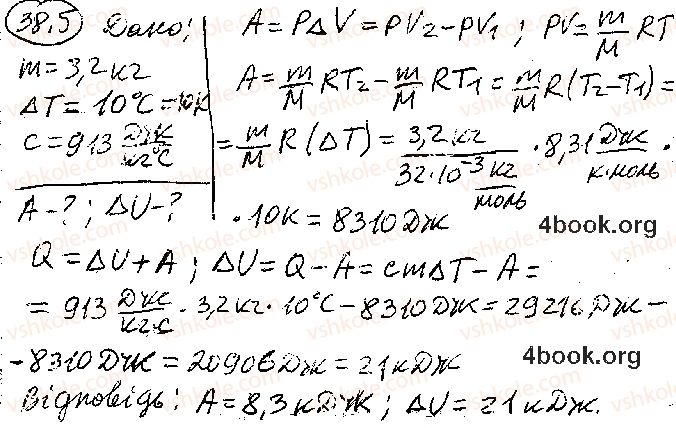 38.5 Дано: A = PΔV = PV₂ - PV₁ ; PV = m/M RT
m = 3,2 кг
ΔT = 10°C = 10K
c = 913 Дж/кг°C
A - ? ; ΔU - ?
A = m/M RT₂ - m/M RT₁ = m/M R(T₂ - T₁) =
= m/M R (ΔT) = 3,2 кг/32·10⁻³ кг/моль · 8,31 Дж/К·моль ·
· 10К = 8310 Дж
4book.org
Q = ΔU + A ; ΔU = Q - A = cmΔT - A =
= 913 Дж/кг·C · 3,2 кг · 10°C - 8310 Дж = 29216 Дж -
- 8310 Дж = 20906 Дж = 21 кДж
4book.org
Відповідь: A = 8,3 кДж ; ΔU = 21 кДж.
vshkole.com